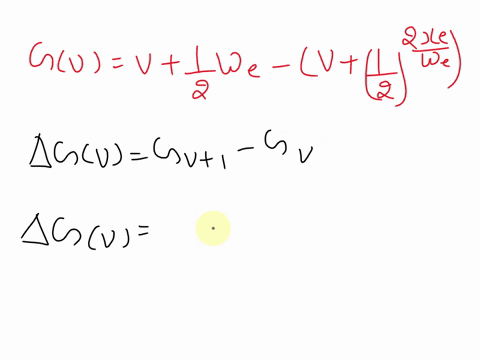 G(v) = v + 1/2 ωe - (v + (1/2)^2xe/ωe)
ΔG(v) = Gv+1 - Gv
ΔG(v) =